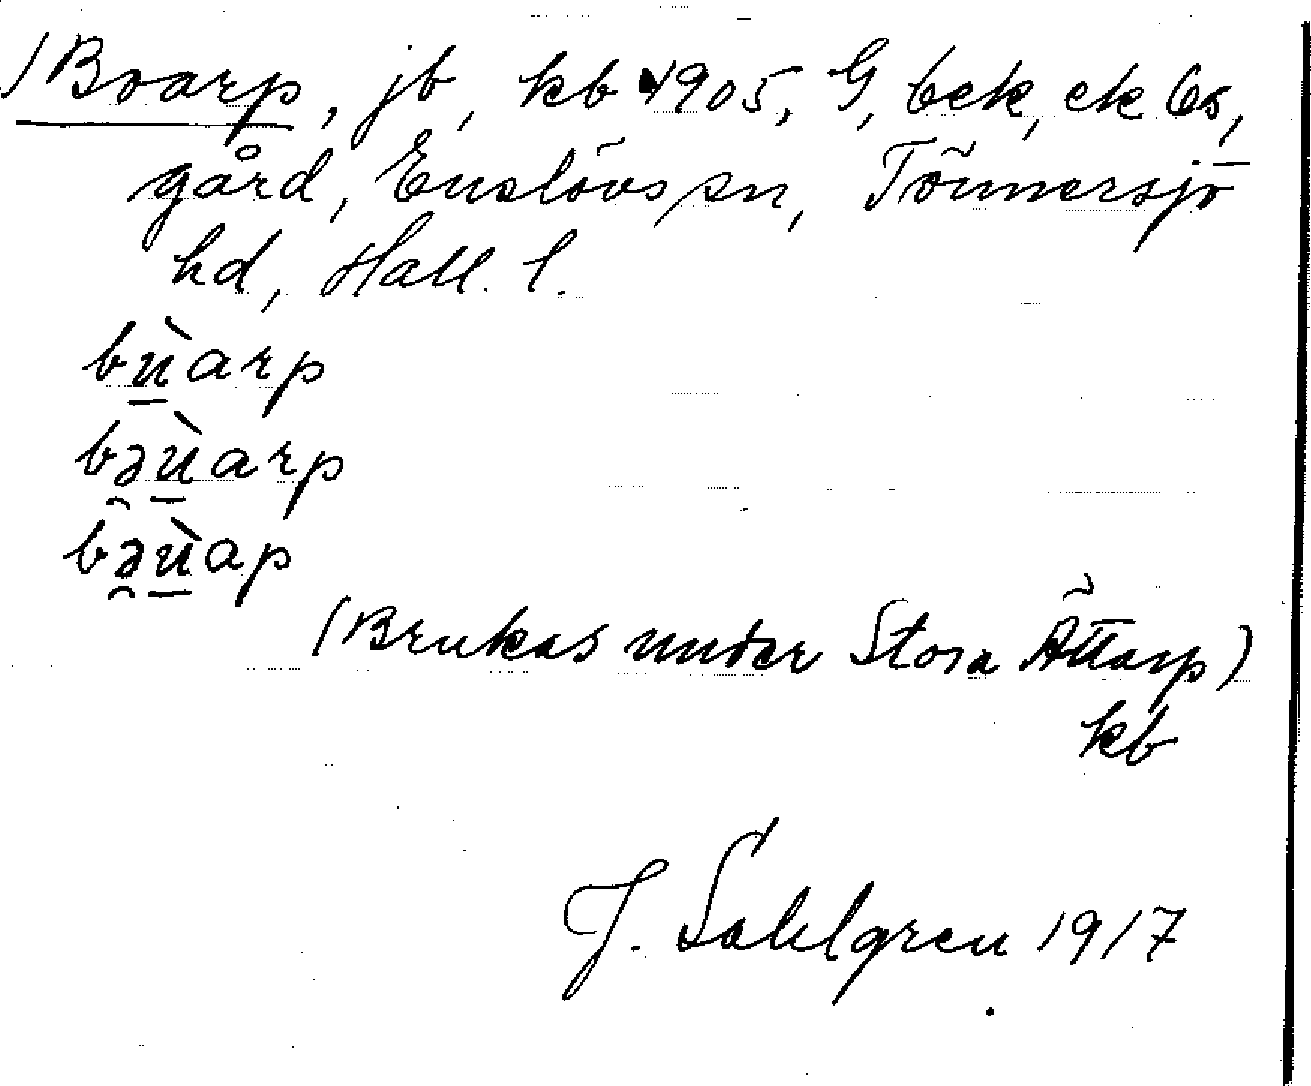 /Boarp, jb, kb 1905, G, bek, ek 65,
gård, Enslövs sn, Tönnersjö
hd, Hall. l.
bù̲arp
bə̯ù̲arp
bə̯ù̲ap
(Brukas under Stora Ättarp)
kb
J. Sahlgren 1917